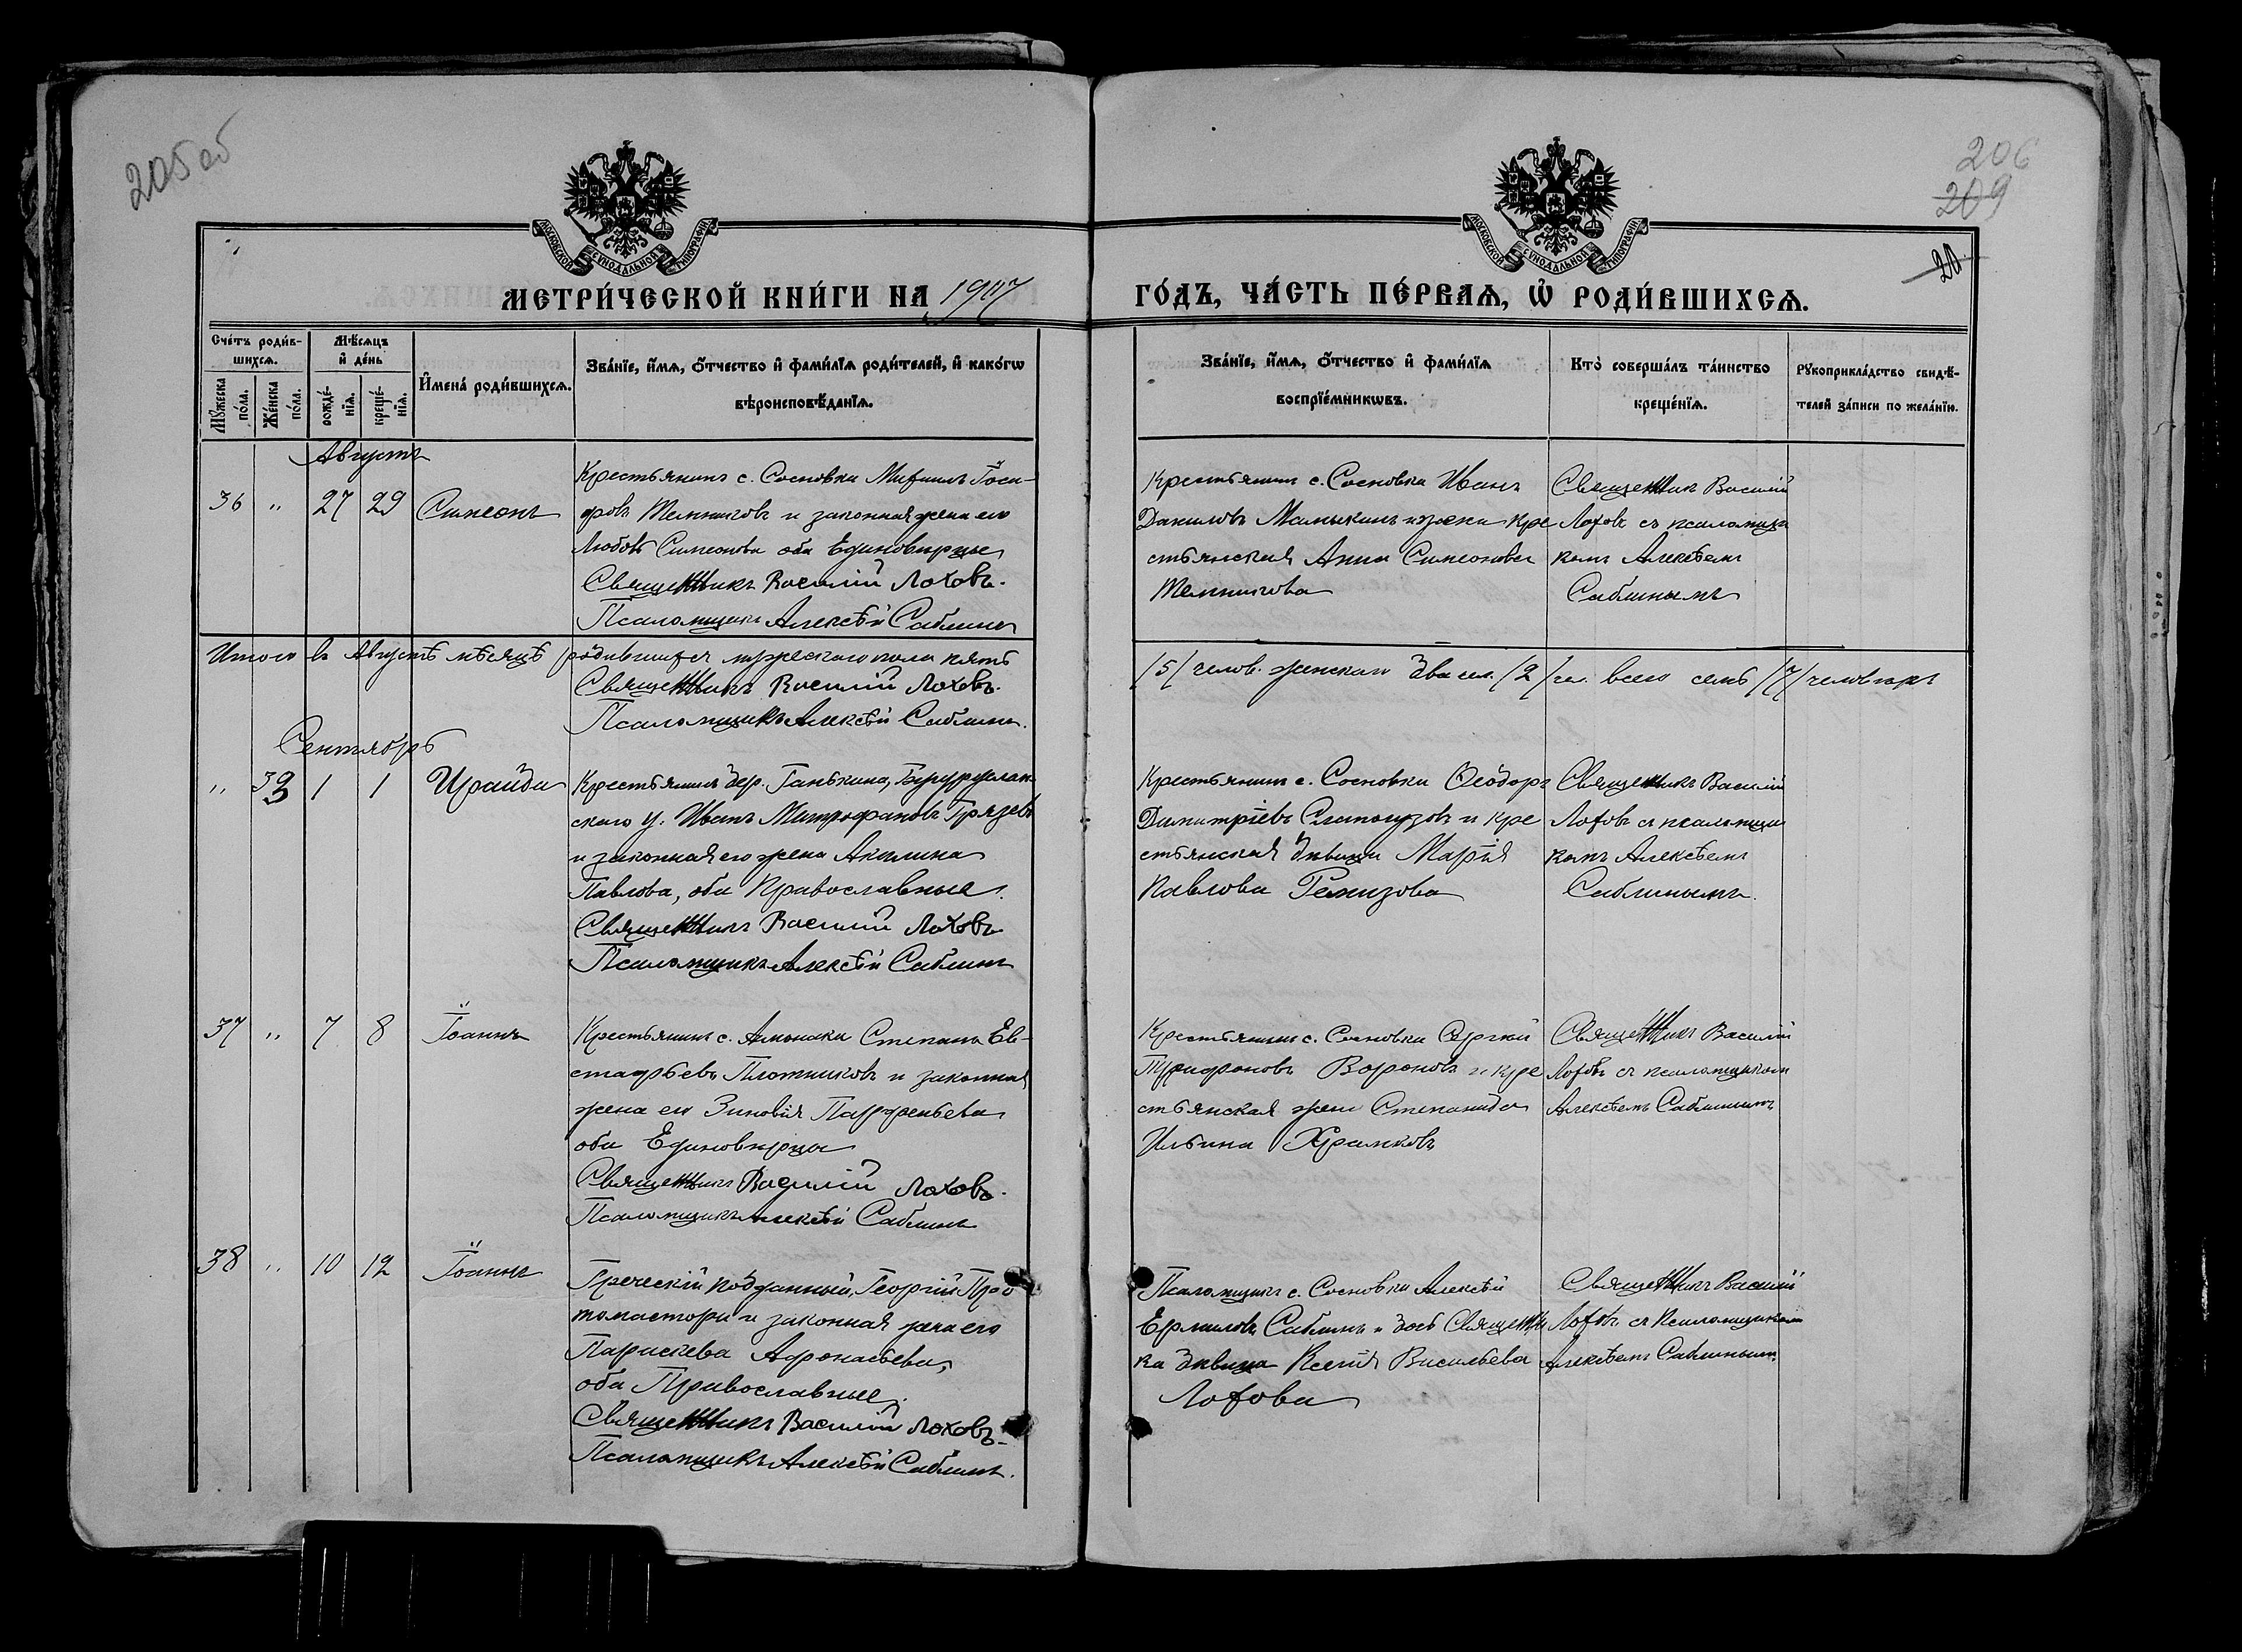 205 об
206
209
20
МОСКОВСКОЙ СѴНОДАЛЬНОЙ ТИПОГРАФІИ
МОСКОВСКОЙ СѴНОДАЛЬНОЙ ТИПОГРАФІИ
МЕТРИ́ЧЕСКОЙ КНИ́ГИ НА 1917 ГО́ДЪ, ЧА́СТЬ ПЕ́РВАѦ, Ѡ РОДИ́ВШИХСѦ.
Сче́тъ роди́в-
шихсѧ.
Мꙋжеска
по́ла.
Же́нска
по́ла.
Мѣ́сѧцъ
и҆ де́нь
рожде́-
нїѧ.
креще́-
нїѧ.
И҆мена̀ роди́вшихсѧ.
Зва́нїе, и҆́мѧ, ѻ҆́тчество и҆ фами́лїѧ роди́телей, и҆ како́гѡ
вѣроисповѣ́данїѧ.
Зва́нїе, и҆́мѧ, ѻ҆́тчество и҆ фами́лїѧ
воспрїе́мникѡвъ.
Кто̀ соверша́лъ та́инство
креще́нїѧ.
Рꙋкоприкла́дство свидѣ́-
телей за́писи по жела́нїю.
Августъ
36 " 27 29 Симеонъ
Крестьянинъ с. Сосновки Михаилъ
и законная жена его
Любовь Симеонова оба Единовѣрцы
Священникъ Василій Лоховъ.
Псаломщикъ Алексѣй Саблинъ
Крестьянинъ с. Сосновки Иванъ
Даниловъ Мамыкинъ и жена кре
стьянская Анна Симеонова
Священникъ Василій
Лоховъ съ псаломщи
комъ Алексѣемъ
Саблинымъ
Итого въ Августѣ мѣсяцѣ родившихся мужескаго пола пять /5/ челов. женскаго два /2/ всего семь /7/ человѣкъ
Священникъ Василій Лоховъ.
Псаломщикъ Алексѣй Саблинъ.
Сентябрь
" 33 1 1 Ираида
Крестьянинъ дер. Ганькина, Бугуруслан
скаго у. Иванъ Митрофановъ Грязевъ
и законная его жена Акилина
Павлова, оба Православные.
Священникъ Василій Лоховъ
Псаломщикъ Алексѣй Саблинъ
Крестьянинъ с. Сосновки Ѳеодоръ
Димитріевъ Слатогузовъ и кре
стьянская дѣвица Марія
Павлова Ремизова
Священникъ Василій
Лоховъ съ псаломщи
комъ Алексѣемъ
Саблинымъ.
37 " 7 8 Іоаннъ
Крестьянинъ с. Степанъ Ев-
стафьевъ Плотниковъ и законная
жена его Зиновія Парфеньева
оба Единовѣрцы
Священникъ Василій Лоховъ.
Псаломщикъ Алексѣй Саблинъ
Крестьянинъ с. Сосновки Сергій
Трифоновъ Вороновъ и кре
стьянская жена Степанида
Ильина Храмковъ
Священникъ Василій
Лоховъ съ псаломщикомъ
Алексѣемъ Саблинымъ
38 " 10 12 Іоаннъ
Греческій подданный, Георгій Про
томастори и законная жена его
Параскева Афонасьева,
оба Православные.
Священникъ Василій Лоховъ
Псаломщикъ Алексѣй Саблинъ.
Псаломщикъ с. Сосновки Алексѣй
Ермиловъ Саблинъ и дочь Священни
ка дѣвица Ксенія Васильева
Лохова
Священникъ Василій
Лоховъ съ Псаломщикомъ
Алексѣемъ Саблинымъ.